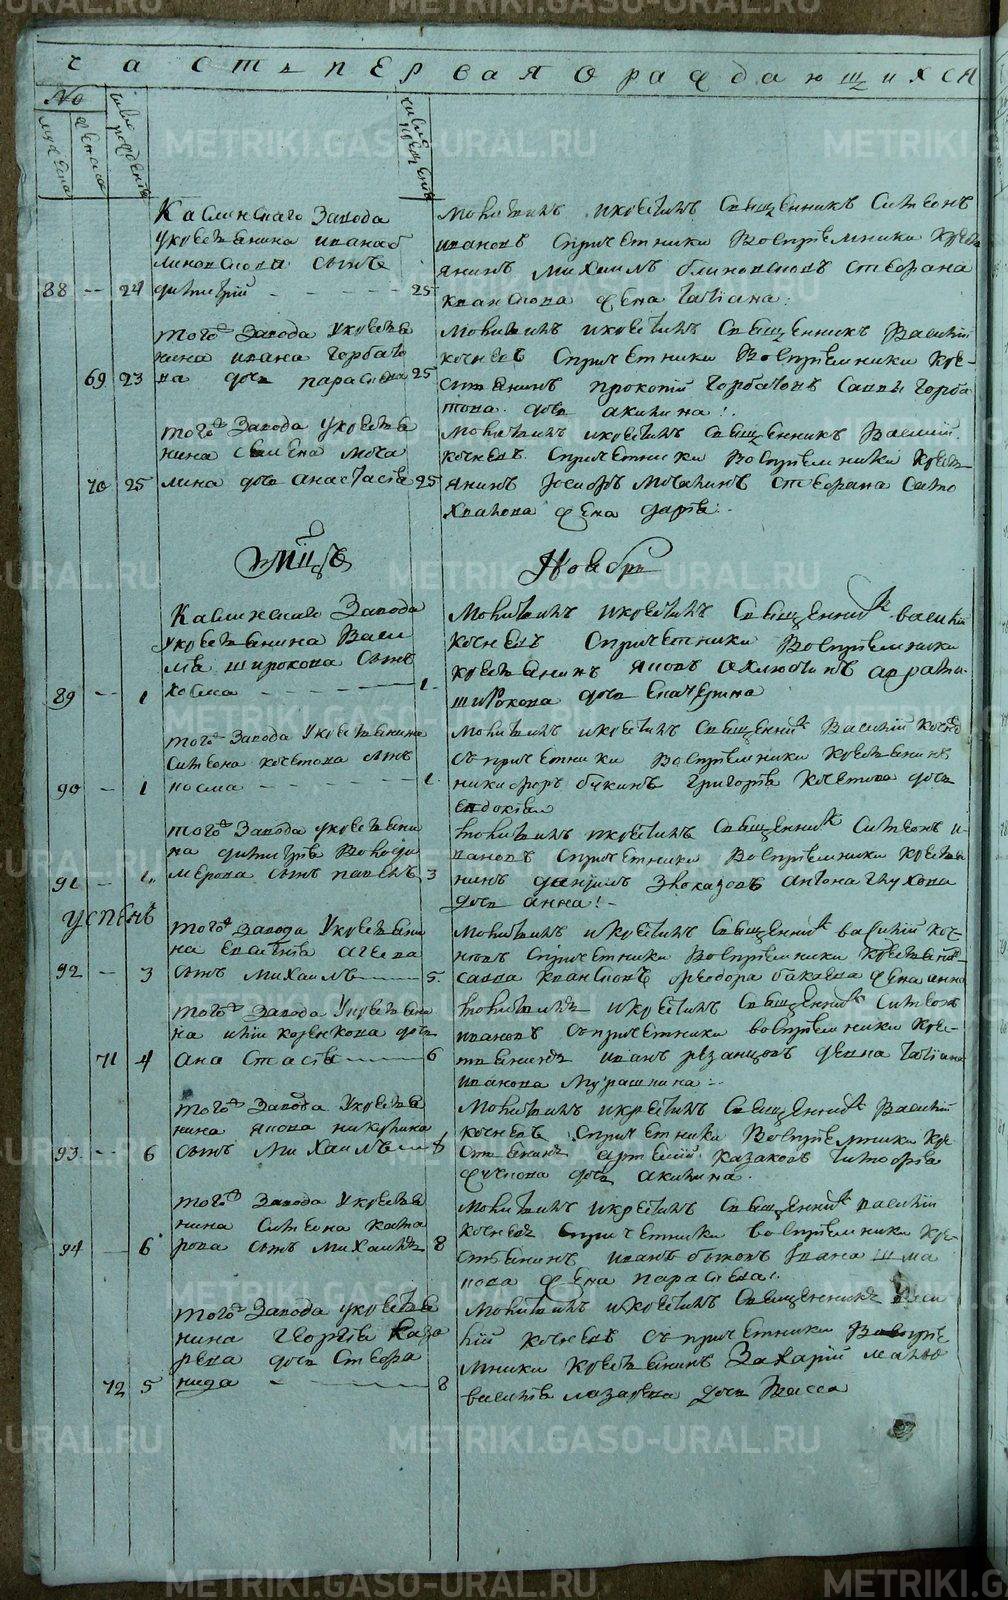 часть первая о раждающихся
No
мужеска
женска
число рожденiя
число крещенiя
Каслинскаго Завода
укрестьянина ивана б
линовскова сынъ
88 — 24 димитрiй — 25
Молитвилъ икрестилъ Священникъ Симеонъ
ивановъ Спричетники Воспрiемники Кресть
янинъ михаилъ блиновсковъ стефана
квавскова жена татiана
того Завода укрестья
нина ивана горбато
69 23 ва дочь параскева 25
Молитвилъ икрестилъ Священникъ Василiй
кочневъ Спричетники Воспрiемники Кре-
стьянинъ прокопiй горбатовъ Саввы горба
това дочь акилина
того Завода укрестья
нина семена моча
70 25 лина дочь анастасiя 25
Молитвилъ икрестилъ Священникъ Василiй
кочневъ Спричетники Воспрiемники Кресть
янинъ Iосифъ мочалинъ стефана
жена дарiя
Мцъ Ноябрь
Каслинскаго Завода
укрестьянина Васи
лья широкова сынъ
89 — 1 косма — 1
Молитвилъ икрестилъ Священникъ василiй
кочневъ Спричетники Воспрiемники
крестьянинъ яковъ
широкова дочь екатерина
того Завода укрестьянина
Симеона кочетова сынъ
90 — 1 косма — 1
Молитвилъ икрестилъ Священникъ Василiй кочнев
съпричетники Воспрiемники крестьянинъ
никифоръ бякинъ григорья кочетова дочь
евдокiя
того Завода укрестьяни
на димитрья Володи
91 — 1 мерова сынъ павелъ 3
молитвилъ икрестилъ Священникъ Симеонъ и
вановъ Спричетники Воспрiемники кресть
нинъ данiилъ Звоказовъ антона глухова
дочь анна
успенъ
того Завода укрестьяни
на евсивья агеева
92 — 3 сынъ михаилъ — 5
Молитвилъ икрестилъ Священникъ василiй коч-
невъ Спричетники Воспрiемники крестьянин
савва квансковъ феодора бакаева жена анна
того Завода укрестьяни
на илiи коренкова дочь
71 4 анастасiя — 6
молитвилъ икрестилъ Священникъ Симеонъ
ивановъ съпричетники воспрiемники кре-
стьянинъ иванъ резанцовъ татiана
иванова мурашкина
того Завода укрестья
нина якова никулина
93 — 6 сынъ михаилъ — 8
Молитвилъ икрестилъ Священникъ Василiй
кочневъ Спричетники Воспрiемники кре
стьянинъ артемiй казаковъ тимофья
дочь акилина
того Завода укрестья
нина Симеона кома
94 — 6 рова сынъ михаилъ 8
Молитвилъ икрестилъ Священникъ василiй
кочневъ Спричетники воспрiемники кре-
стьянинъ иванъ быковъ Ивана шма
кова жена параскева
того Завода укрестья
нина георгья каза
рева дочь стефа
72 5 нида — 8
Молитвилъ икрестилъ Священникъ васи
лiй кочневъ съпричетники Воспрiе
мники Крестьянинъ Захарiй
василья лазарева дочь Васса
METRIKI.GASO-URAL.RU